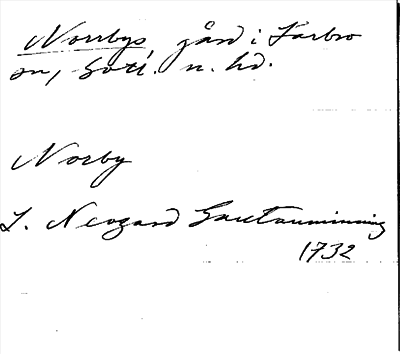 Norrbys, gård i Larbro
sn, Gotl. n. hd.
Norby
L. Neogard Gautauminning
1732